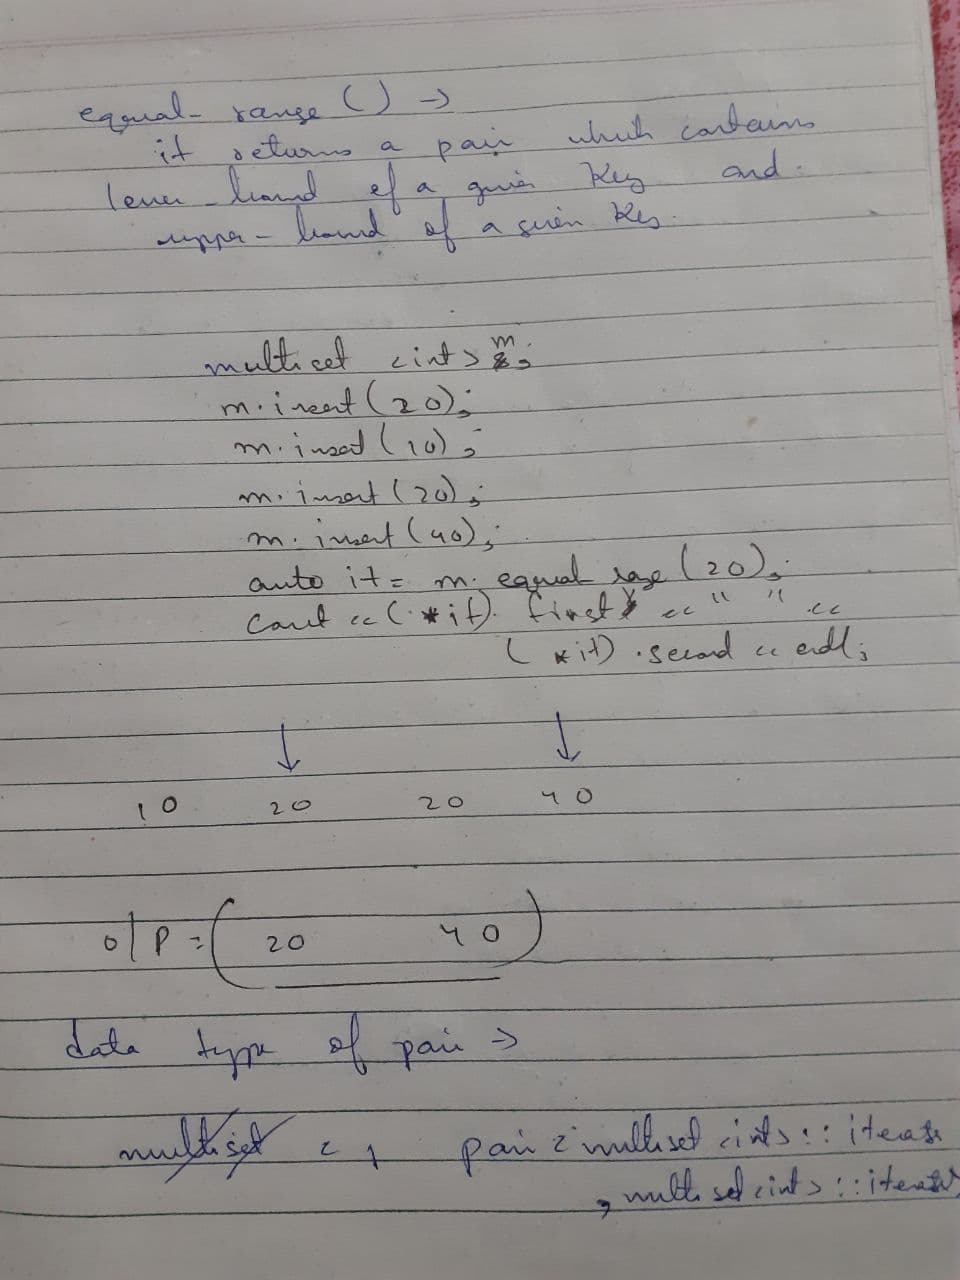 equal- range () →
it returns a pair which contains
lower-bound of a given Key and.
upper-bound of a given key.
multiset <int> m;
m.insert(20);
m.insert(10);
m.insert(20);
m.insert(40);
auto it = m. equal range (20);
cout << (*it). first << " " <<
(*it).second << endl;
↓ ↓
10 20 20 40
o/p = ( 20 40 )
data type of pair →
multiset < , pair < multiset <int>:: iterator
, multiset <int>::iterator